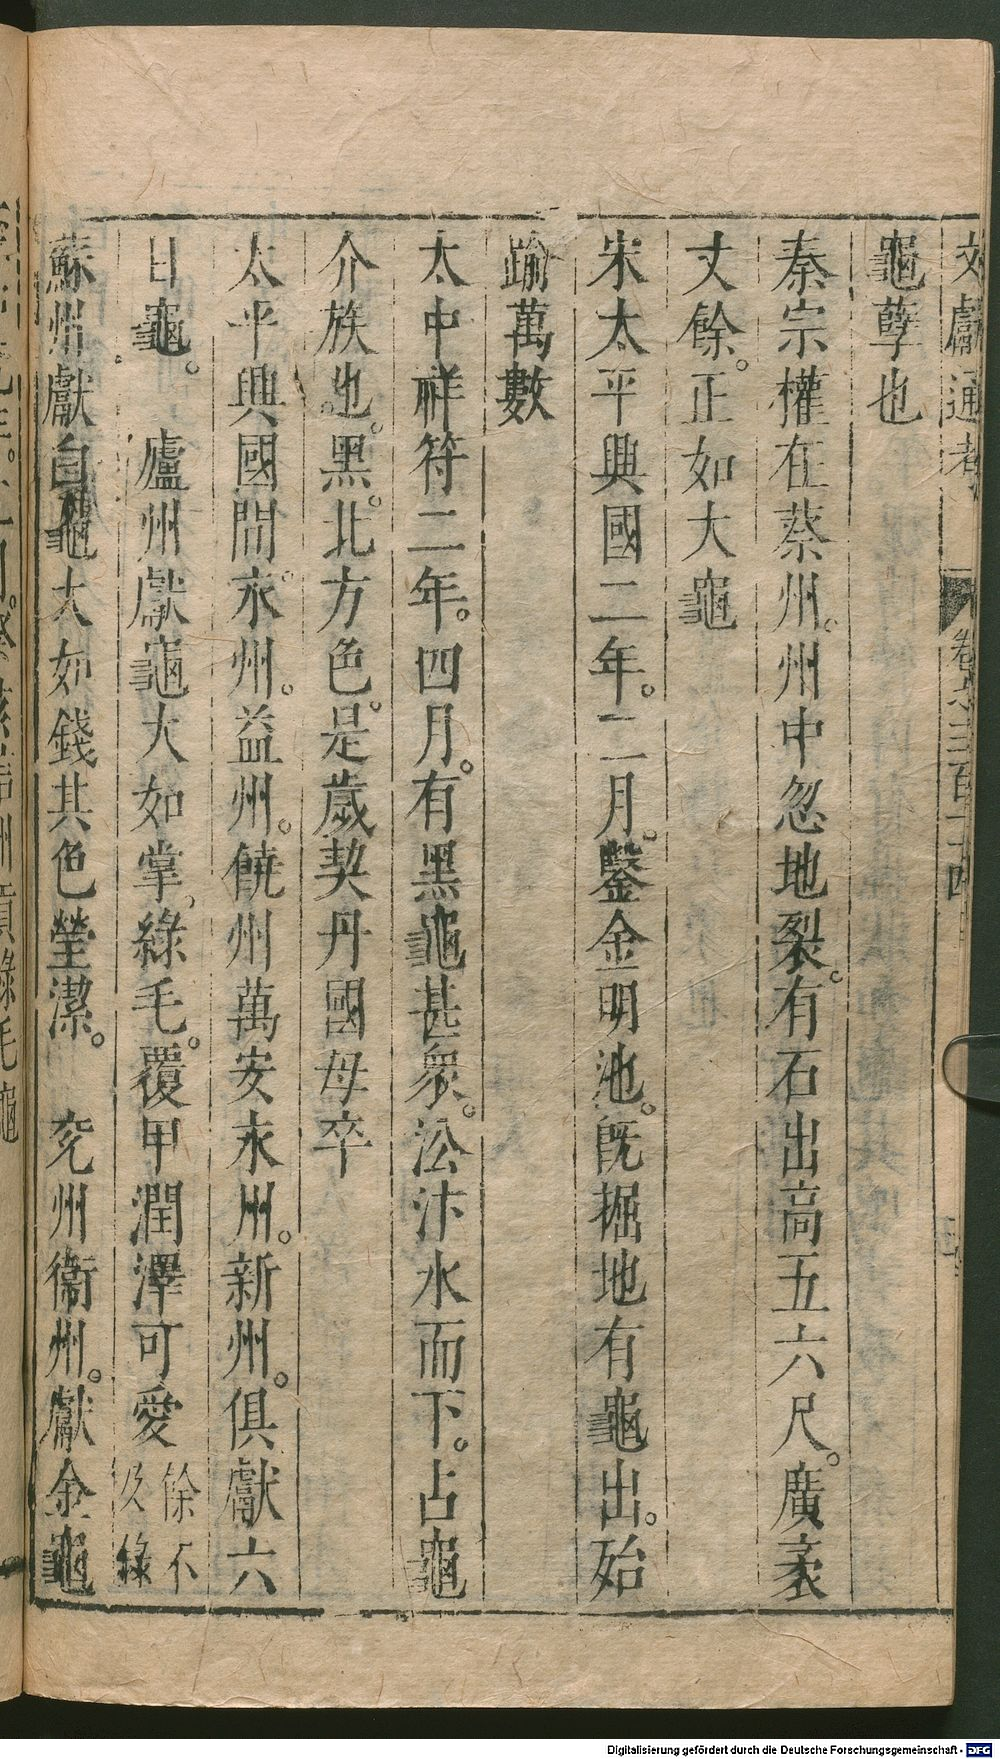 文獻通考 卷之三百十四
龜孽也
秦宗權在蔡州。州中忽地裂。有石出高五六尺。廣袤
丈餘。正如大龜
宋太平興國二年。二月。鑿金明池。旣掘地有龜出。殆
踰萬數
太中祥符二年。四月。有黑龜甚衆。㳂汴水而下。占龜
介族也。黑。北方色。是歲契丹國母卒
太平興國間。永州。益州。饒州萬安永州。新州。俱獻六
日龜。 廬州獻龜大如掌。綠毛。覆甲潤澤可愛 餘不
及錄
蘇州獻白龜大如錢其色瑩潔。 兖州衞州。獻金龜
Digitalisierung gefördert durch die Deutsche Forschungsgemeinschaft - DFG